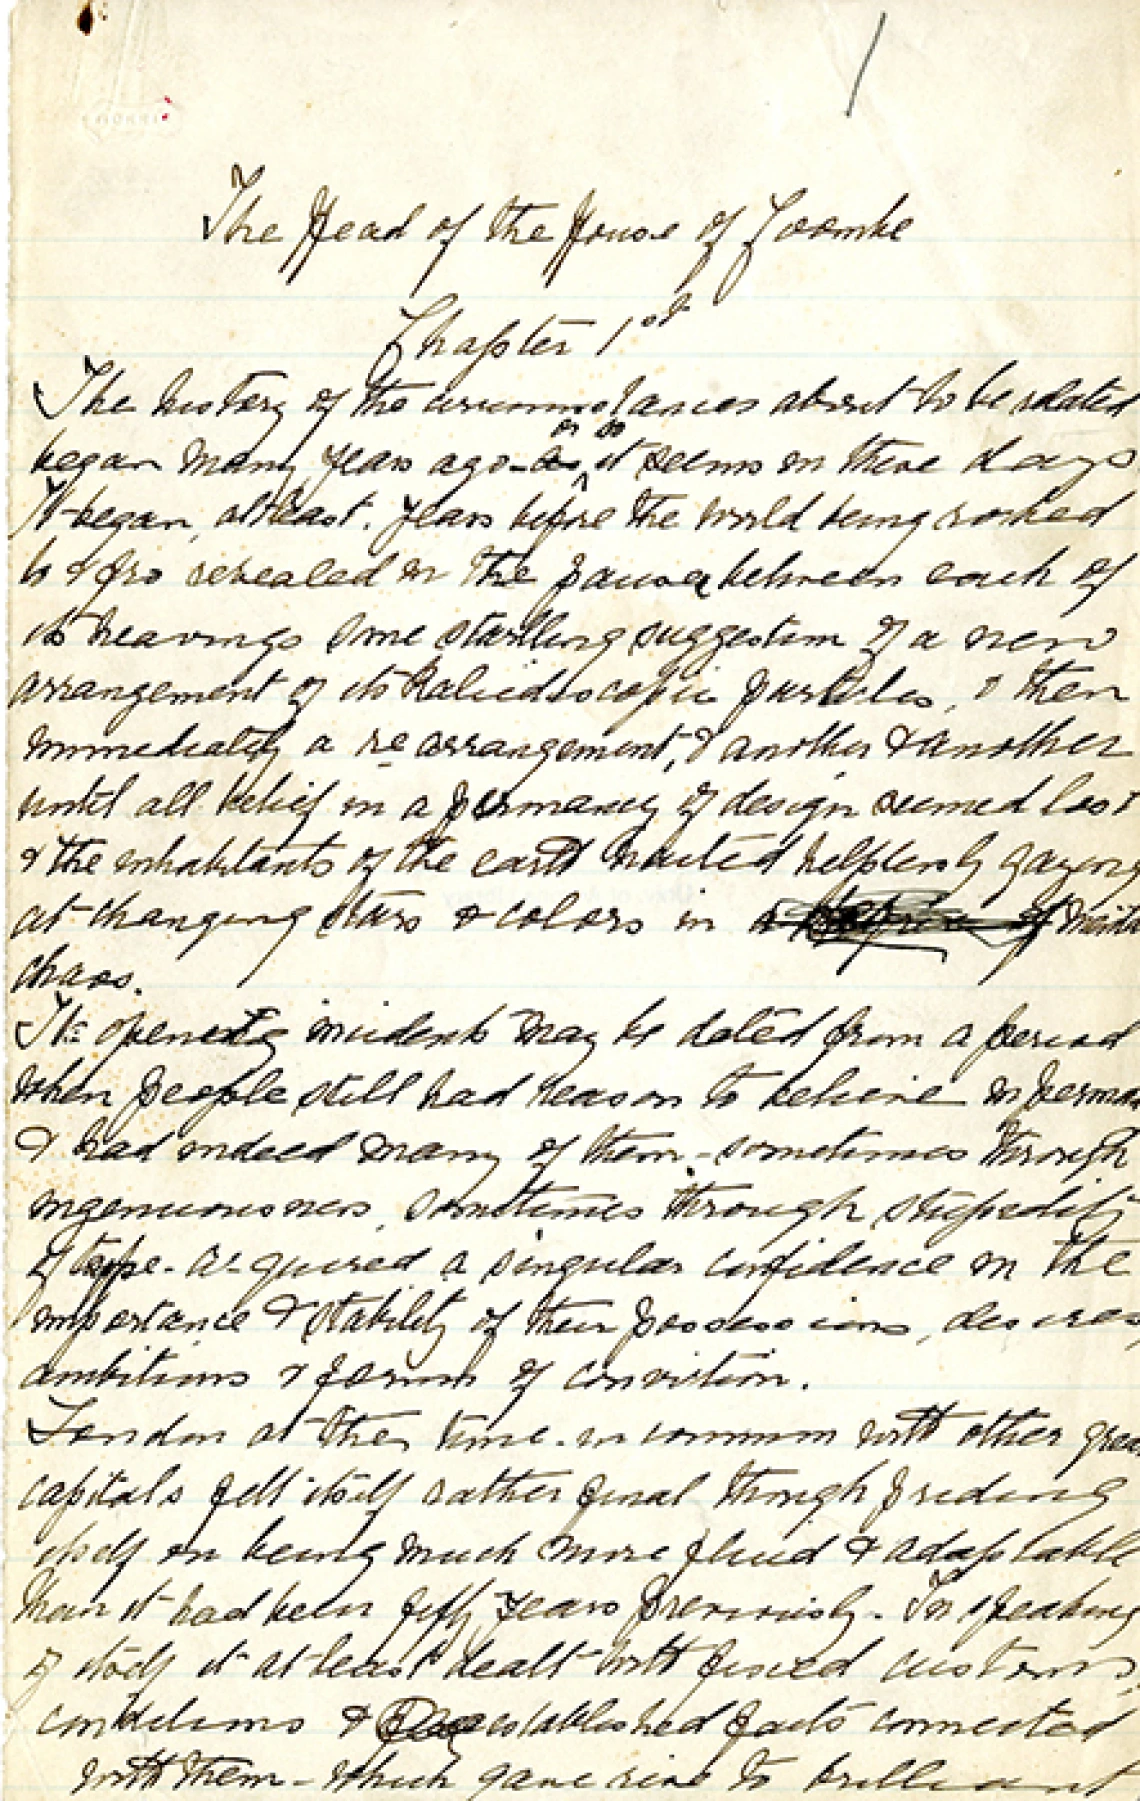 1
The Head of the House of Coombe
Chapter 1st
The history of the circumstances about to be related
began many years ago - as or so it seems in these days
It began, at least, years before the world being rocked
to & fro revealed in the pauses between each of
its heavings some startling suggestion of a new
arrangement of its kaliedoscopic particles, & then
immediately a re arrangement, & another & another
until all belief in a permanency of design seemed lost
& the inhabitants of the earth waited helplessly gazing
at changing stars & colors in a of
chaos.
The opening incidents may be dated from a period
when people still had reason to believe in perma
& had indeed many of them - sometimes through
ingenuousness, sometimes through stupidity
of type - acquired a singular confidence in the
importance & stability of their possessions, desires,
ambitions & forms of conviction.
London at the time, in common with other great
capitals felt itself rather final though priding
itself on being much more fluid & adaptable
than it had been fifty years previously. In speaking
of itself it at least dealt with fixed customs,
conditions & established facts connected
with them - which gave rise to brilliant